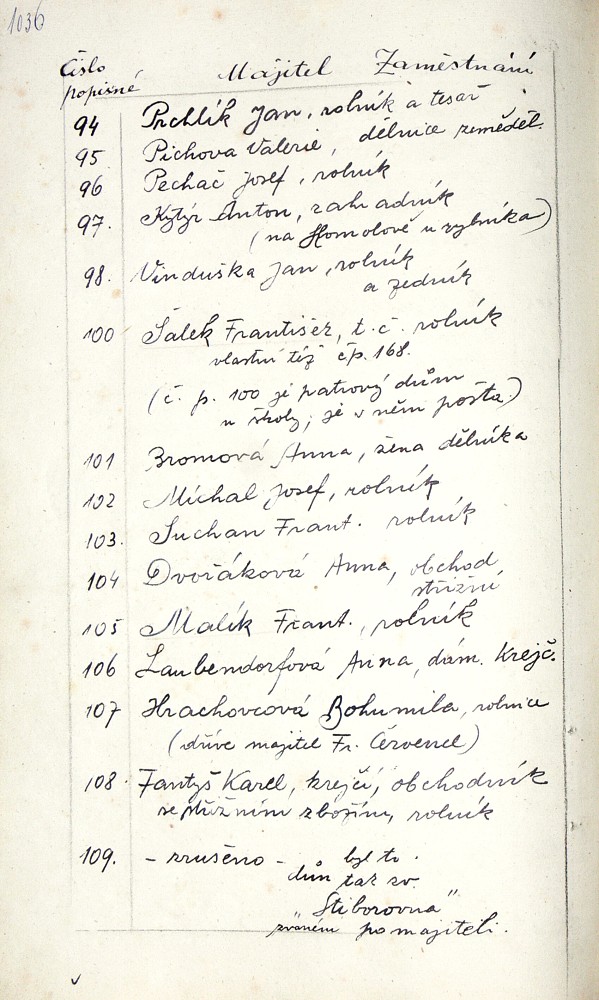 1036
Číslo popisné Majitel Zaměstnání
94 Prchlík Jan, rolník a tesař
95 Píchova Valerie, dělnice zeměděl.
96 Pecháč Josef, rolník
97. Kytýr Anton, zahradník
(na Homolově u rybníka)
98. Vinduška Jan, rolník
a zedník
100 Šálek František, t. č. rolník
vlastní též čp. 168.
(č. p. 100 je patrový dům
u školy, je v něm pošta.)
101 Bromová Anna, žena dělníka
102 Míchal Josef, rolník
103. Suchan Frant. rolník
104 Dvořáková Anna, obchod
střižní
105 Malík Frant., rolník
106 Laubendorfová Anna, dám. krejč.
107 Hrachovcová Bohumila, rolnice
(dříve majitel Fr. Červenel)
108 Fantyš Karel, krejčí, obchodník
se střižním zbožím, rolník
109. - zrušeno - byl to
dům tak zv.
"Stiborovna"
zvaném po majiteli.